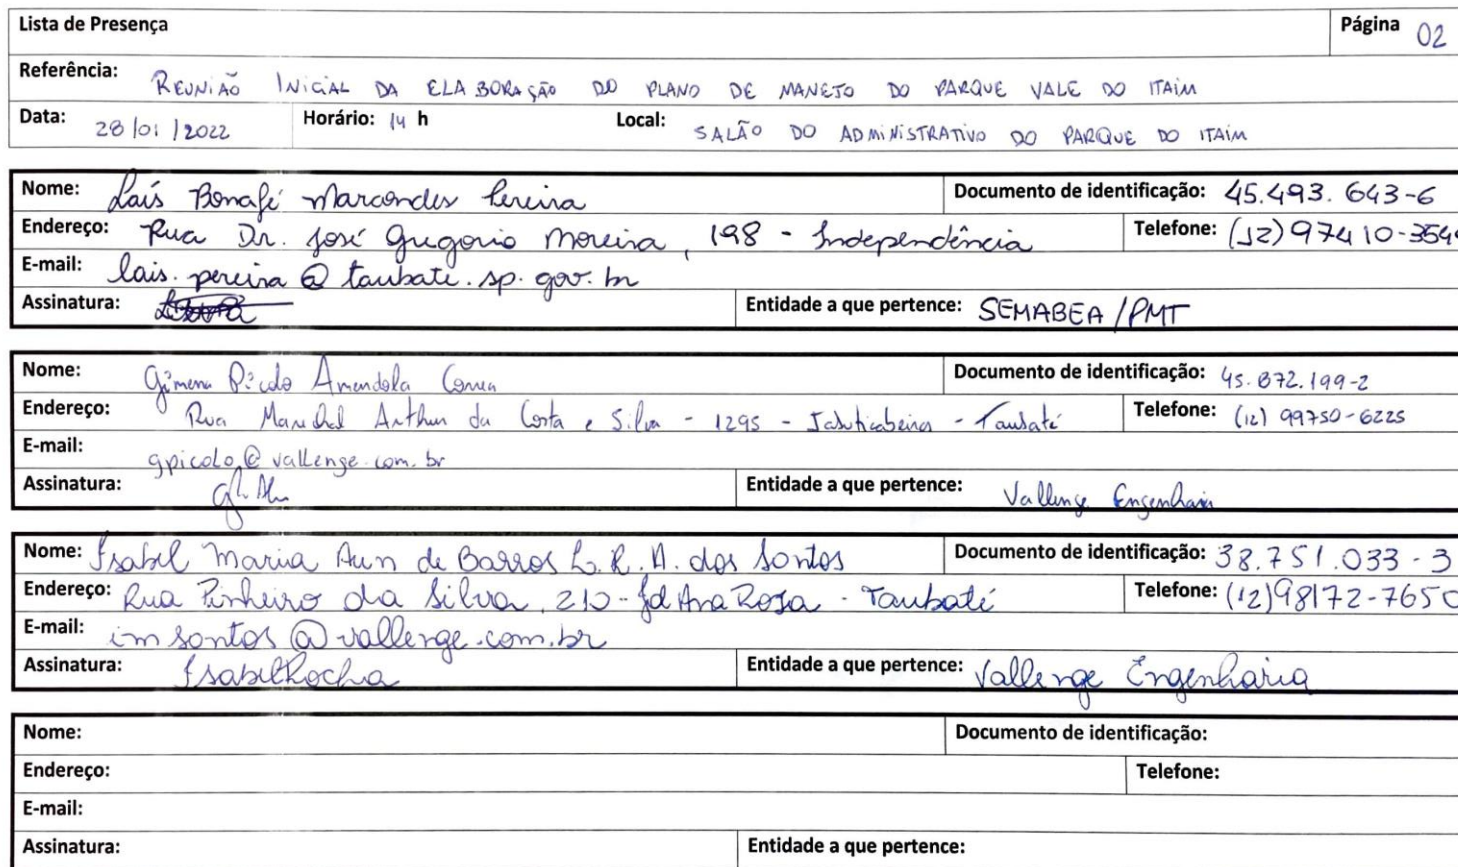 Lista de Presença Página 02
Referência: REUNIÃO INICIAL DA ELABORAÇÃO DO PLANO DE MANEJO DO PARQUE VALE DO ITAIM
Data: 28/01/2022 Horário: 14 h Local: SALÃO DO ADMINISTRATIVO DO PARQUE DO ITAIM
Nome: Laís Bonafé Marcondes Pereira Documento de identificação: 45.493.643-6
Endereço: Rua Dr. José Gregorio Moreira, 198 - Independência Telefone: (12) 97410-354
E-mail: lais.pereira@taubate.sp.gov.br
Assinatura: Entidade a que pertence: SEMABEA/PMT
Nome: Gimena Picolo Amendola Correa Documento de identificação: 45.872.199-2
Endereço: Rua Marechal Arthur da Costa e Silva - 1295 - Jabuticabeiras - Taubaté Telefone: (12) 99750-6225
E-mail: gpicolo@vallenge.com.br
Assinatura: Entidade a que pertence: Vallenge Engenharia
Nome: Isabel Maria Aun de Barros L. R. A. dos Santos Documento de identificação: 38.751.033-3
Endereço: Rua Pinheiro da Silva, 210 - Jd Ana Rosa - Taubaté Telefone: (12)98172-7650
E-mail: imsantos@vallenge.com.br
Assinatura: Isabel Rocha Entidade a que pertence: Vallenge Engenharia
Nome: Documento de identificação:
Endereço: Telefone:
E-mail:
Assinatura: Entidade a que pertence: